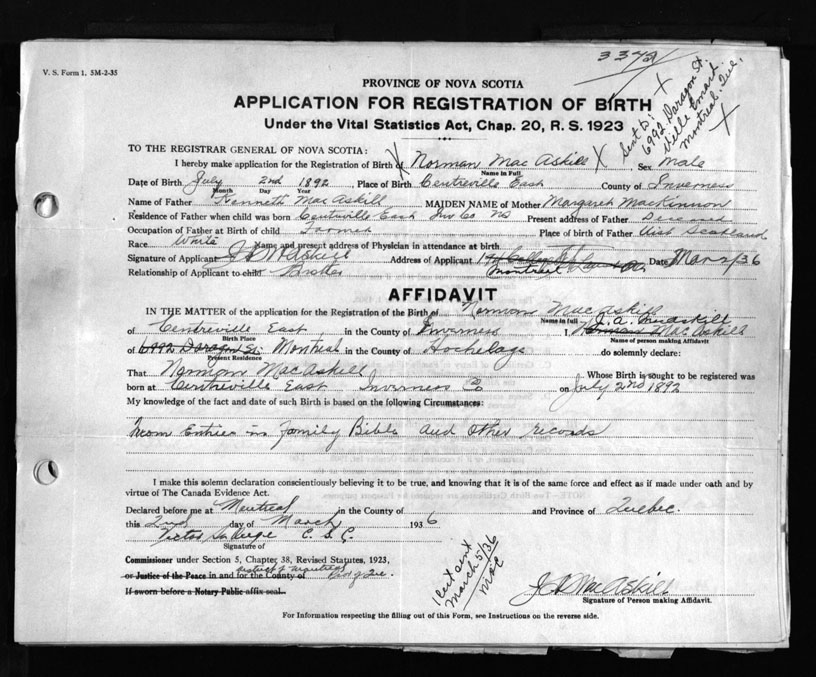 3342
V. S. Form 1, 5M-2-35
PROVINCE OF NOVA SCOTIA
APPLICATION FOR REGISTRATION OF BIRTH
Under the Vital Statistics Act, Chap. 20, R. S. 1923
Sent to:
6992 Daragon St.
Ville Emard
Montreal. Que.
TO THE REGISTRAR GENERAL OF NOVA SCOTIA:
I hereby make application for the Registration of Birth of Norman MacAskill Sex Male
Name in Full
Date of Birth July 2nd 1892, Place of Birth Centreville East County of Inverness
Month Day Year
Name of Father Kenneth MacAskill MAIDEN NAME of Mother Margaret MacKinnon
Residence of Father when child was born Centreville East Inv Co NS Present address of Father Deceased
Occupation of Father at Birth of child Farmer Place of birth of Father Uist Scotland
Race White Name and present address of Physician in attendance at birth
Signature of Applicant J A MacAskill Address of Applicant Montreal Date Mar 2/36
Relationship of Applicant to child Brother
AFFIDAVIT
IN THE MATTER of the application for the Registration of the Birth of Norman MacAskill
Name in full J. A. MacAskill
of Centreville East in the County of Inverness I, Norman MacAskill
Birth Place Name of person making Affidavit
of 6992 Daragon St. Montreal in the County of Hochelaga do solemnly declare:
Present Residence
That Norman MacAskill Whose Birth is sought to be registered was
born at Centreville East Inverness Co on July 2nd 1892
My knowledge of the fact and date of such Birth is based on the following Circumstances:
From Entries in Family Bible and other records
I make this solemn declaration conscientiously believing it to be true, and knowing that it is of the same force and effect as if made under oath and by
virtue of The Canada Evidence Act.
Declared before me at Montreal in the County of and Province of Quebec.
this 2nd day of March 1936
C. S. C.
Signature of
Commissioner under Section 5, Chapter 38, Revised Statutes, 1923,
district of Montreal
or Justice of the Peace in and for the County of
If sworn before a Notary Public affix seal.
Cert sent
March 5/36
J A MacAskill
Signature of Person making Affidavit.
For Information respecting the filling out of this Form, see Instructions on the reverse side.